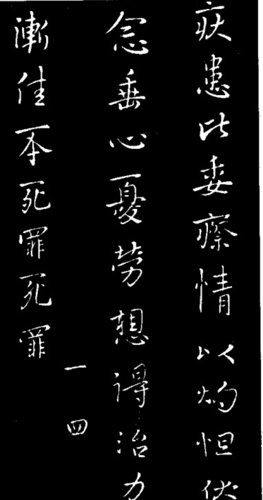 疾患比委瘵情以灼怛伏
念垂心憂勞想得治力
漸佳不死罪死罪
一四